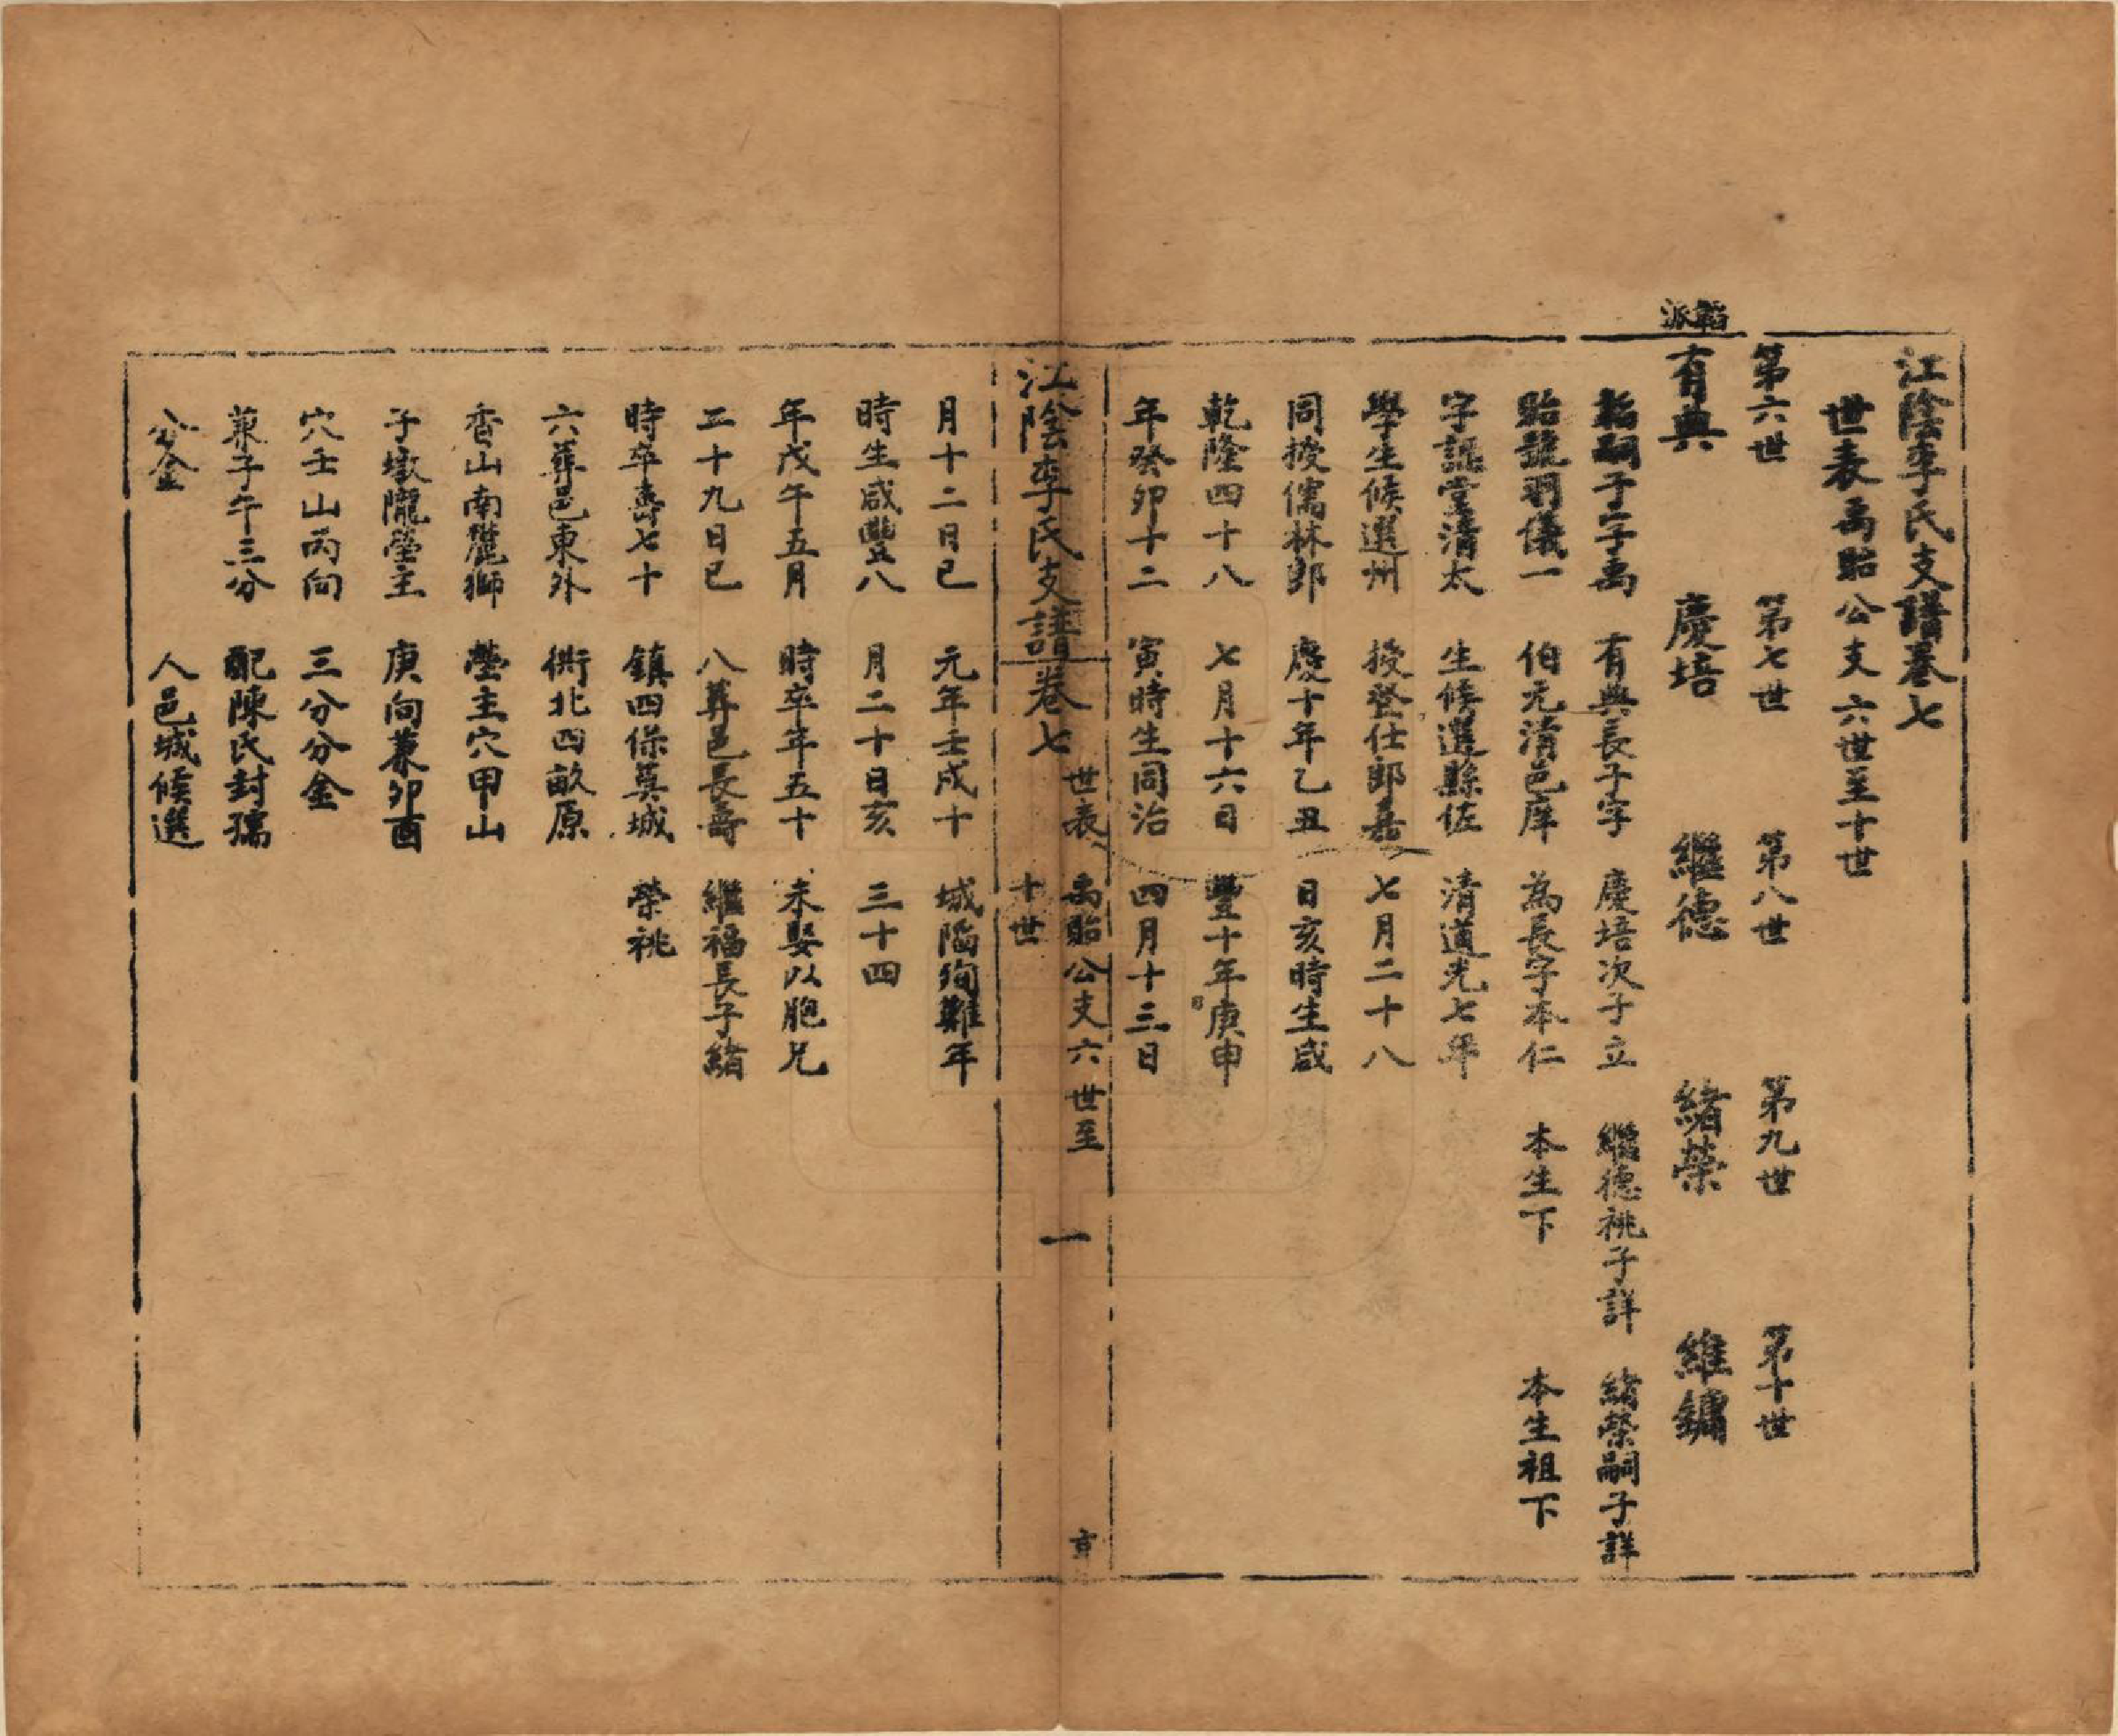 江陰李氏支譜卷七
世表禹貽公支六世至十世
第六世 第七世 第八世 第九世 第十世
韜派
有典 慶培 繼德 緒榮 維鏞
韜嗣子字禹 有典長子字 慶培次子立 繼德祧子詳 緒榮嗣子詳
貽號羽儀一 伯元清邑庠 為長字本仁 本生下 本生祖下
字謡堂清太 生候選縣佐 清道光七年
學生候選州 授登仕郎嘉 七月二十八
同授儒林郎 慶十年乙丑 日亥時生咸
乾隆四十八 七月十六日 豐十年庚申
年癸卯十二 寅時生同治 四月十三日
江陰李氏支譜卷七 世表 禹貽公支六世至十世 一
月十二日巳 元年壬戌十 城陷殉難年
時生咸豐八 月二十日亥 三十四
年戊午五月 時卒年五十 未娶以胞兄
二十九日巳 八葬邑長壽 繼福長子緒
時卒壽七十 鎮四保莫城 榮祧
六葬邑東外 衖北四畝原
香山南麓獅 塋主穴甲山
子墩隴塋主 庚向兼卯酉
穴壬山丙向 三分分金
兼子午三分 配陳氏封孺
分金 人邑城候選